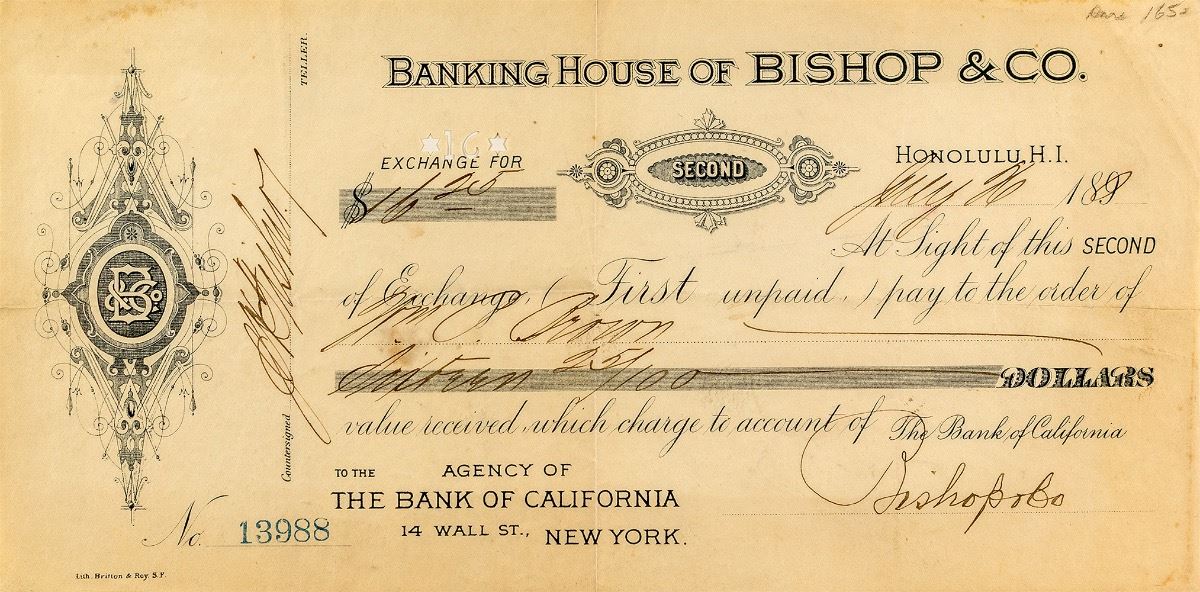 165
TELLER.
BANKING HOUSE OF BISHOP & CO.
★16★
EXCHANGE FOR
SECOND
HONOLULU, H.I.
$16 25
July 26 1888
At Sight of this SECOND
of Exchange, (First unpaid,) pay to the order of
Wm C. Brown
Sixteen 25/100 DOLLARS
value received, which charge to account of The Bank of California
Countersigned
TO THE AGENCY OF
THE BANK OF CALIFORNIA
14 WALL ST., NEW YORK.
Bishop & Co
No. 13988
Lith. Britton & Rey. S.F.